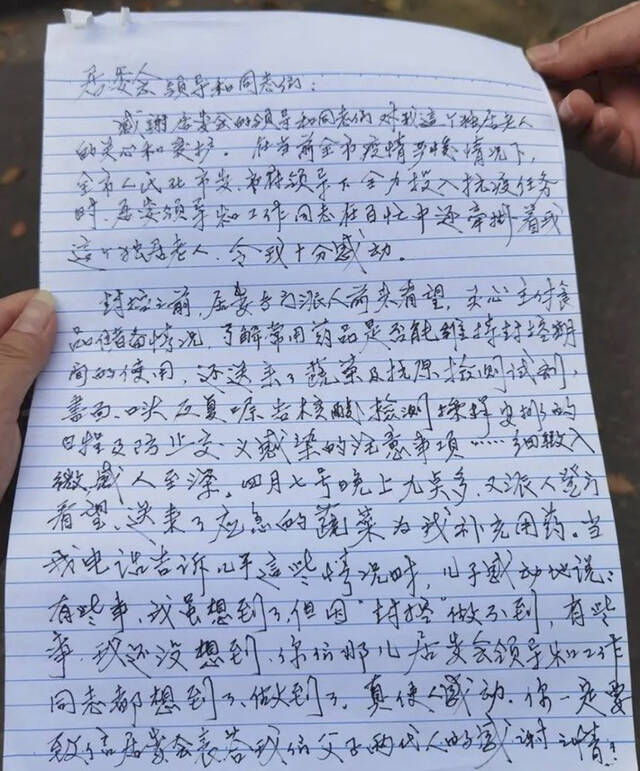 居委会领导和同志们：
感谢居委会的领导和同志们对我这个独居老人
的关心和爱护。在当前全市疫情严峻情况下，
全市人民在市委、市府领导下全力投入抗疫任务
时，居委领导和工作同志在百忙中还牵挂着我
这个独居老人，令我十分感动。
封控之前，居委专门派人前来看望，关心主付食
品储备情况，了解常用药品是否能维持封控期
间的使用，还送来了蔬菜及抗原检测试剂，
书面、口头反复嘱告核酸检测採样安排的
日程及防止交义感染的注意事项……细致入
微，感人至深。四月七号晚上九点多，又派人登门
看望，送来了应急的蔬菜为我补充用药。当
我电话告诉儿子这些情况时，儿子感动地说：
有些事，我虽想到了，但因"封控"做不到，有些
事，我还没想到，你们那儿居委会领导和工作
同志都想到了、做到了，真使人感动。你一定要
致信居委会表答我们父子两代人的感谢之情！